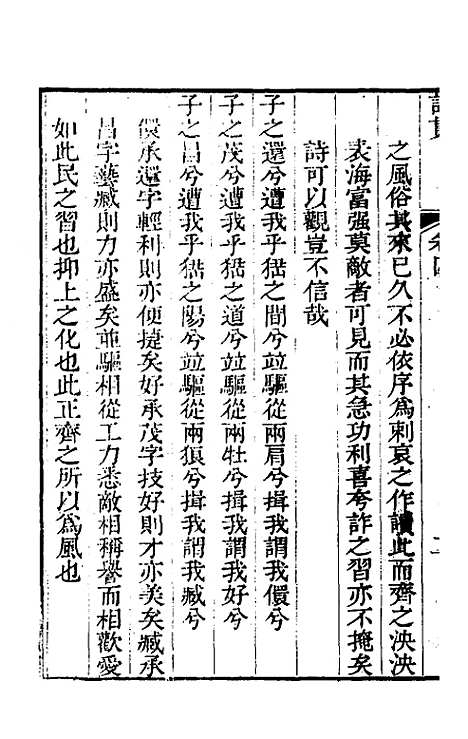 之風俗其來已久不必依序爲刺哀之作讀此而齊之泱泱
表海富强莫敵者可見而其急功利喜夸詐之習亦不掩矣
詩可以觀豈不信哉
子之還兮遭我乎峱之間兮竝驅從兩肩兮揖我謂我儇兮
子之茂兮遭我乎峱之道兮竝驅從兩牡兮揖我謂我好兮
子之昌兮遭我乎峱之陽兮竝驅從兩狼兮揖我謂我臧兮
儇承還字輕利則亦便捷矣好承茂字技好則才亦美矣臧承
昌字藝臧則力亦盛矣竝驅相從工力悉敵相稱譽而相歡愛
如此民之習也抑上之化也此正齊之所以爲風也